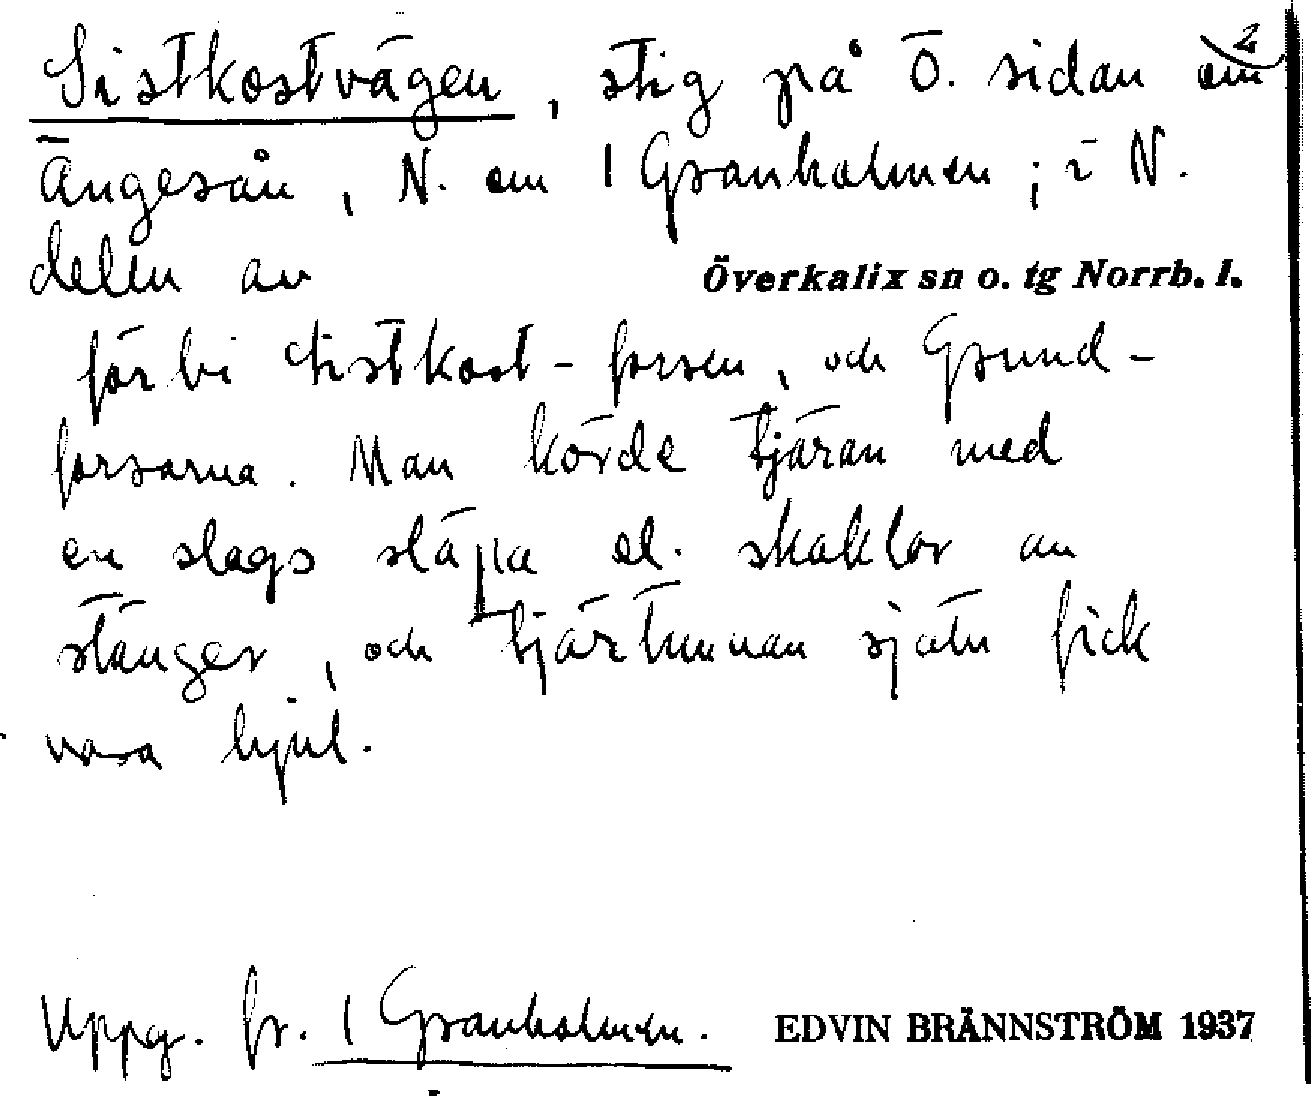 Sistkostvägen, stig på Ö. sidan om 2
Ängesån, N. om 1 Granholmen; i N.
delen av Överkalix sn o. tg Norrb. l.
förbi Sistkost-forsen, och Grund-
forsarna. Man körde tjäran med
en slags släpa el. skaklor av
stänger, och tjärtunnan själv fick
vara hjul.
Uppg. fr. 1 Granholmen. EDVIN BRÄNNSTRÖM 1937